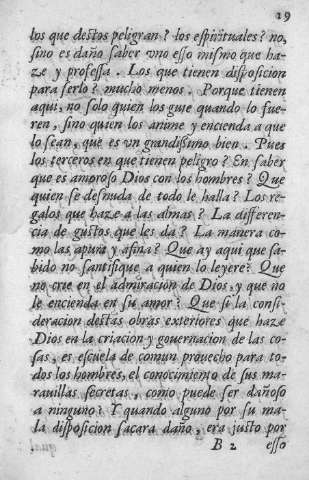 19
los que destos peligran? los espirituales? no,
sino es daño saber vno esso mismo que ha-
ze y professa. Los que tienen disposicion
para serlo? mucho menos. Porque tienen
aqui, no solo quien los guie quando lo fue-
ren, sino quien los anime y encienda a que
lo sean, que es vn grandissimo bien. Pues
los terceros en que tienen peligro? En saber
que es amoroso Dios con los hombres? Que
quien se desnuda de todo le halla? Los re-
galos que haze a las almas? La differen-
cia de gustos que les da? La manera co-
mo las apura y afina? Que ay aqui que sa-
bido no santifique a quien lo leyere? Que
no crie en el admiracion de Dios, y que no
le encienda en su amor? Que si la consi-
deracion destas obras exteriores que haze
Dios en la criacion y gouernacion de las co-
sas, es escuela de comun prouecho para to-
dos los hombres, el conocimiento de sus ma-
rauillas secretas, como puede ser dañoso
a ninguno? Y quando alguno por su ma-
la disposicion sacara daño, era justo por
B 2 esso